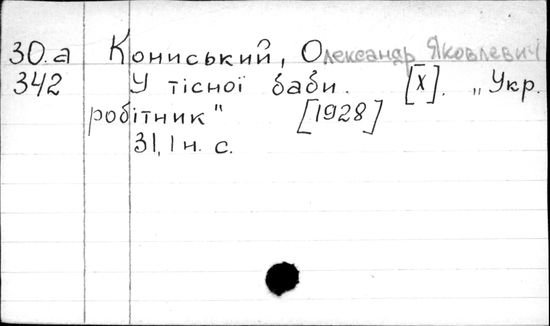 30.а Кониський, Олександр Яковлевич
342 У тісної баби. [X]. „Укр.
робітник" [1928]
31, 1 н. с.